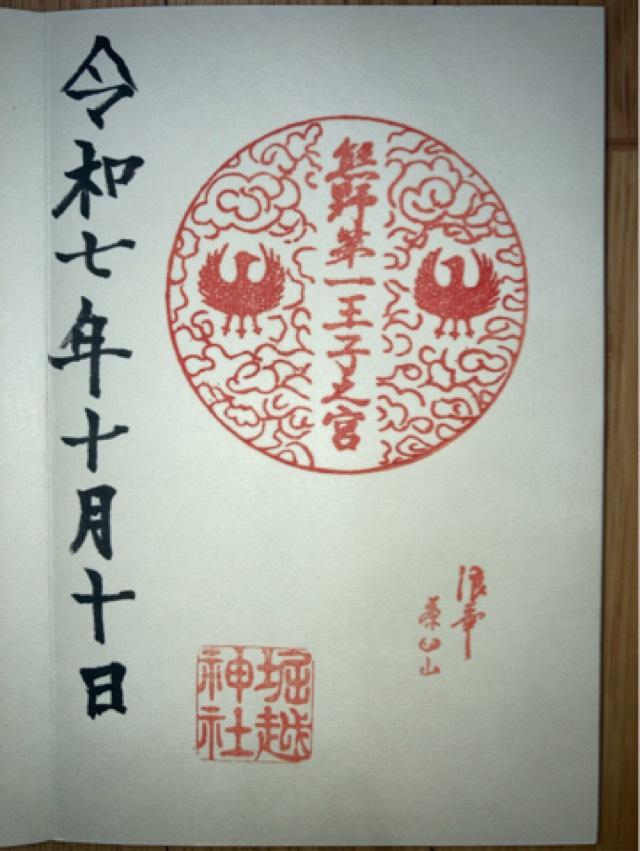 熊野第一王子之宮
浪華
茶臼山
堀越
神社
令和七年十月十日